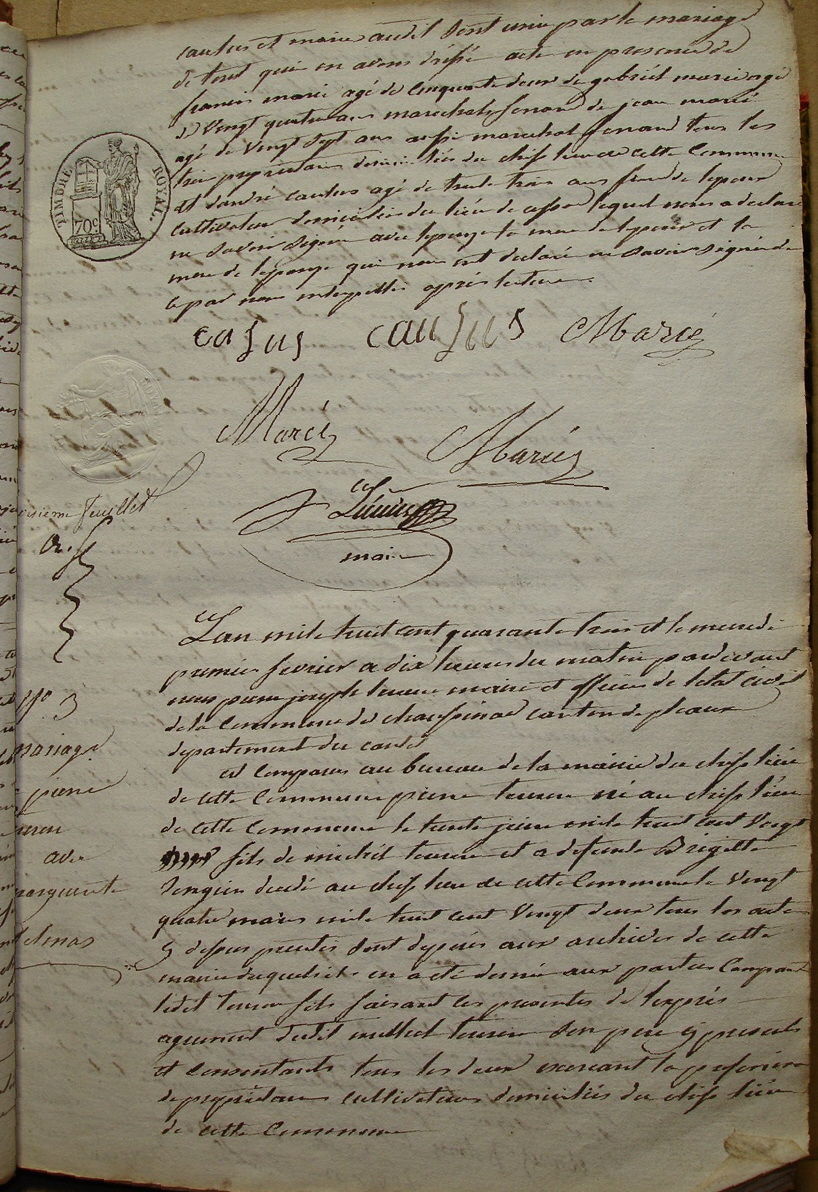 causus et marie audit sont unis par le mariage
de tout quoi en avons dréssé acte en presence de
francois marie agé de cinquante deux de gabriel marie agé
de vingt quatre ans marechals ferrand de jean marie
agé de vingt sept ans aussi marechal ferrand tous les
trois propriétaires domiciliés du chef lieu de cette Commune
et d'andré causus agé de trente trois ans frere de lepoux
cultivateur domiciliés du lieu de lequel nous a declaré
ne savoir signer avec lepouze la mere de lepoux et la
mere de lepouze qui nous ont declaré ne savoir signer de
ce par nous interpellés après lecture
TIMBRE ROYAL
70c
causus causus Marié
Marié Mariés
maire
feuillet
Lan mile huit cent quarante trois et le mercredi
premier fevrier a dix heures du matin pardevant
nous pierre joseph maire et officier de letat civil
de la Commune de chaussenac canton de pleaux
departement du cantal
No 3
mariage
pierre
avec
marguerite
est Comparu au bureau de la mairie du chef lieu
de cette Commune pierre né au chef lieu
de cette Commune le trente juin mile huit cent vingt
fils de michel et a defunte Brigitte
decedé au chef lieu de cette Commune le vingt
quatre mars mile huit cent vingt deux tous les actes
cy dessus precités sont deposés aux archives de cette
mairie desquels en acte donné aux parties Comparant
ledit fils faisant les presentes de lexprés
agrement dudit michel son pere cy present
et Consentant tous les deux exercant la profession
de proprietaires cultivateurs domiciliés du chef lieu
de cette Commune